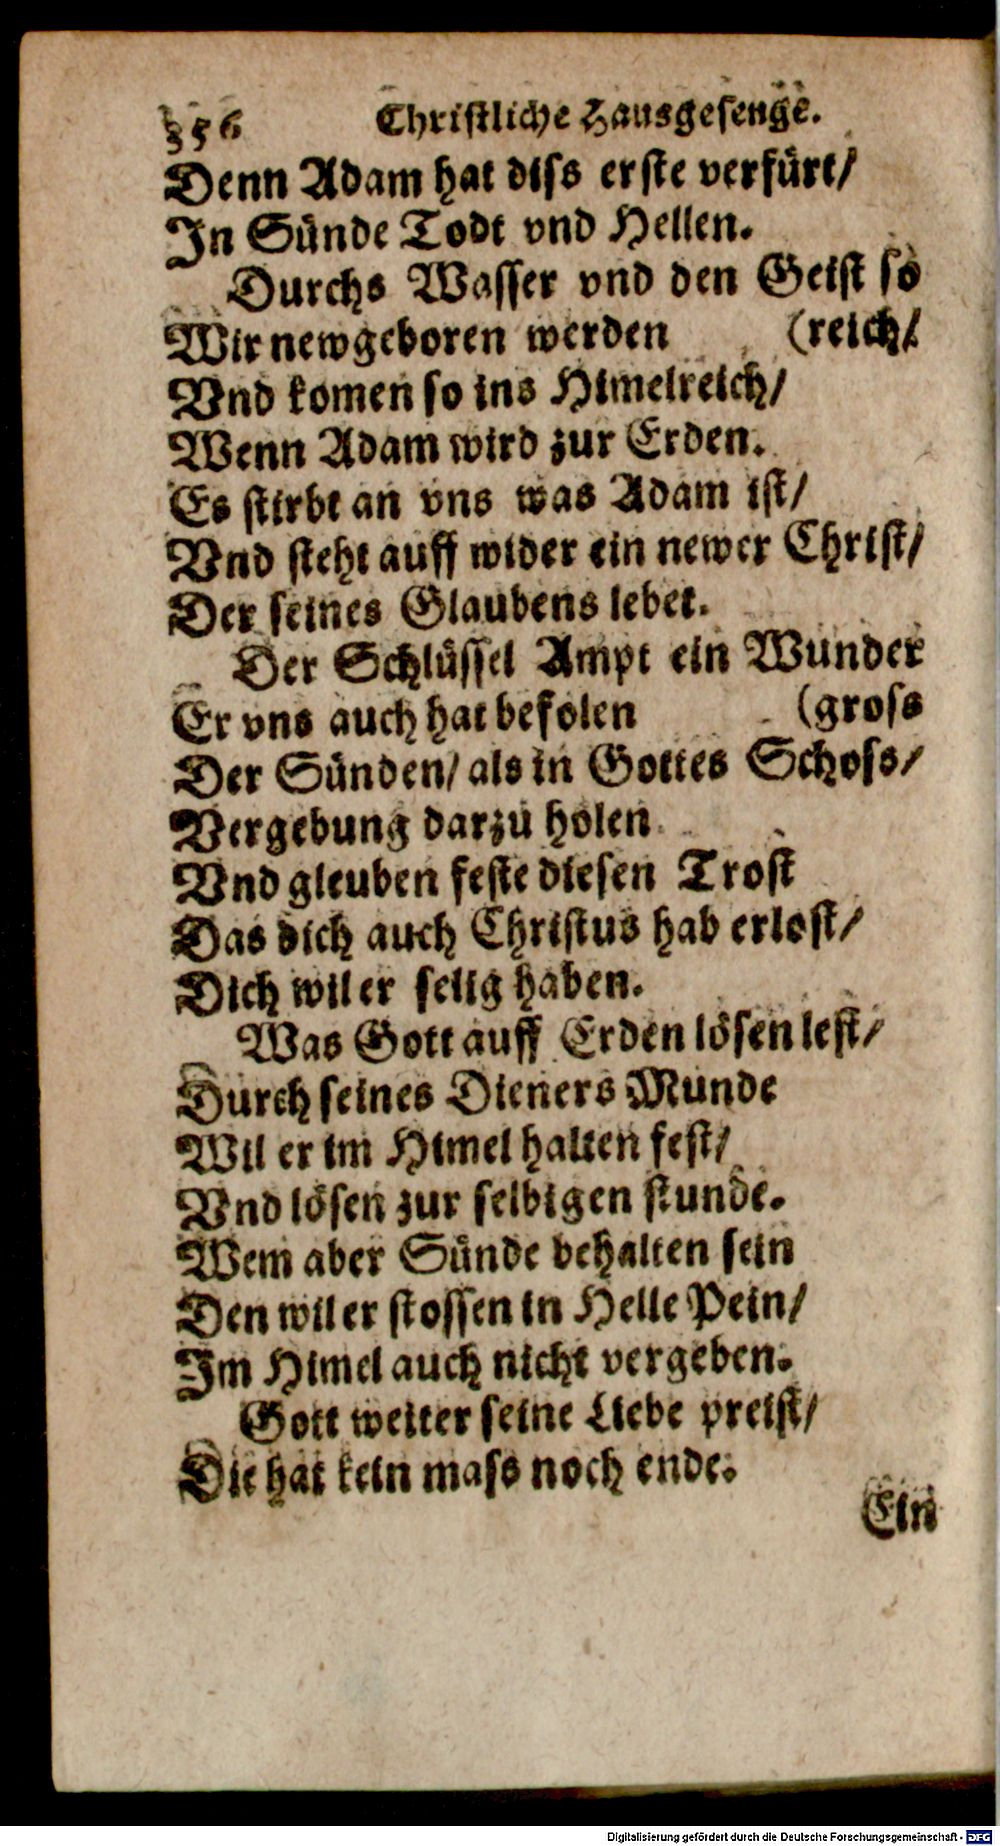 356 Christliche Hausgesenge.
Denn Adam hat diss erste verfürt/
In Sünde Todt vnd Hellen.
Durchs Wasser vnd den Geist so
Wir newgeboren werden (reich/
Vnd komen so ins Himelreich/
Wenn Adam wird zur Erden.
Es stirbt an vns was Adam ist/
Vnd steht auff wider ein newer Christ/
Der seines Glaubens lebet.
Der Schlüssel Ampt ein Wunder
Er vns auch hat befolen (gross
Der Sünden/ als in Gottes Schoss/
Vergebung darzu holen
Vnd gleuben feste diesen Trost
Das dich auch Christus hab erlost/
Dich wil er selig haben.
Was Gott auff Erden lösen lest/
Durch seines Dieners Munde
Wil er im Himel halten fest/
Vnd lösen zur selbigen stunde.
Wem aber Sünde behalten sein
Den wil er stossen in Helle Pein/
Im Himel auch nicht vergeben.
Gott weiter seine Liebe preist/
Die hat kein mass noch ende.
Ein
Digitalisierung gefördert durch die Deutsche Forschungsgemeinschaft - DFG